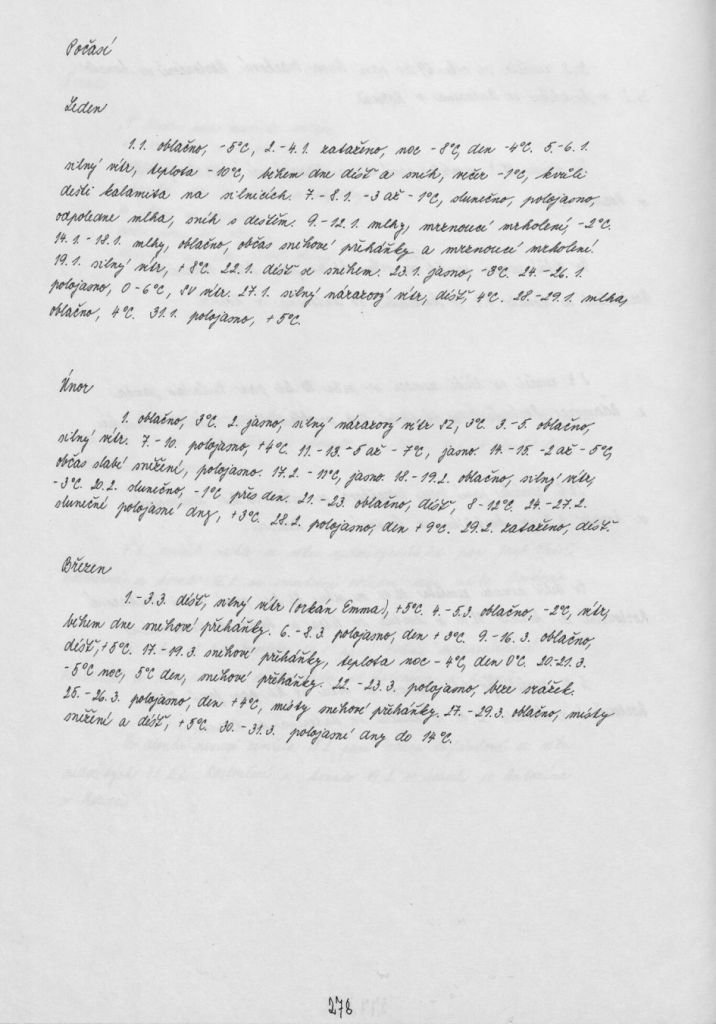 Počasí
Leden
1.1. oblačno, -5°C, 2.-4.1. zataženo, noc -8°C, den -4°C. 5.-6.1.
silný vítr, teplota -10°C, během dne déšť a sníh, večer -1°C, kvůli
dešti kalamita na silnicích. 7.-8.1. -3 až -1°C, slunečno, polojasno,
odpoledne mlha, sníh s deštěm. 9.-12.1. mlhy, mrznoucí mrholení, -2°C.
14.1.-18.1. mlhy, oblačno, občas sněhové přeháňky a mrznoucí mrholení.
19.1. silný vítr, +8°C. 22.1. déšť se sněhem. 23.1. jasno, -3°C. 24.-26.1.
polojasno, 0-6°C, SV vítr. 27.1. silný nárazový vítr, déšť, 4°C. 28.-29.1. mlha,
oblačno, 4°C. 31.1. polojasno, +5°C.
Únor
1. oblačno, 3°C. 2. jasno, silný nárazový vítr SZ, 3°C. 3.-5. oblačno,
silný vítr. 7.-10. polojasno, +4°C. 11.-13. -5 až -7°C, jasno. 14.-15. -2 až -5°C,
občas slabé sněžení, polojasno. 17.2. -11°C, jasno. 18.-19.2. oblačno, silný vítr,
-3°C. 20.2. slunečno, -1°C přes den. 21.-23. oblačno, déšť, 8-12°C. 24.-27.2.
sluneční polojasné dny, +3°C. 28.2. polojasno, den +9°C. 29.2. zataženo, déšť.
Březen
1.-3.3. déšť, silný vítr (orkán Emma), +5°C. 4.-5.3. oblačno, -2°C, vítr,
během dne sněhové přeháňky. 6.-8.3. polojasno, den +3°C. 9.-16.3. oblačno,
déšť, +5°C. 17.-19.3. sněhové přeháňky, teplota noc -4°C, den 0°C. 20.-21.3.
-5°C noc, 5°C den, sněhové přeháňky. 22.-23.3. polojasno, beze srážek.
25.-26.3. polojasno, den +4°C, místy sněhové přeháňky. 27.-29.3. oblačno, místy
sněžení a déšť, +5°C. 30.-31.3. polojasné dny do 14°C.
278